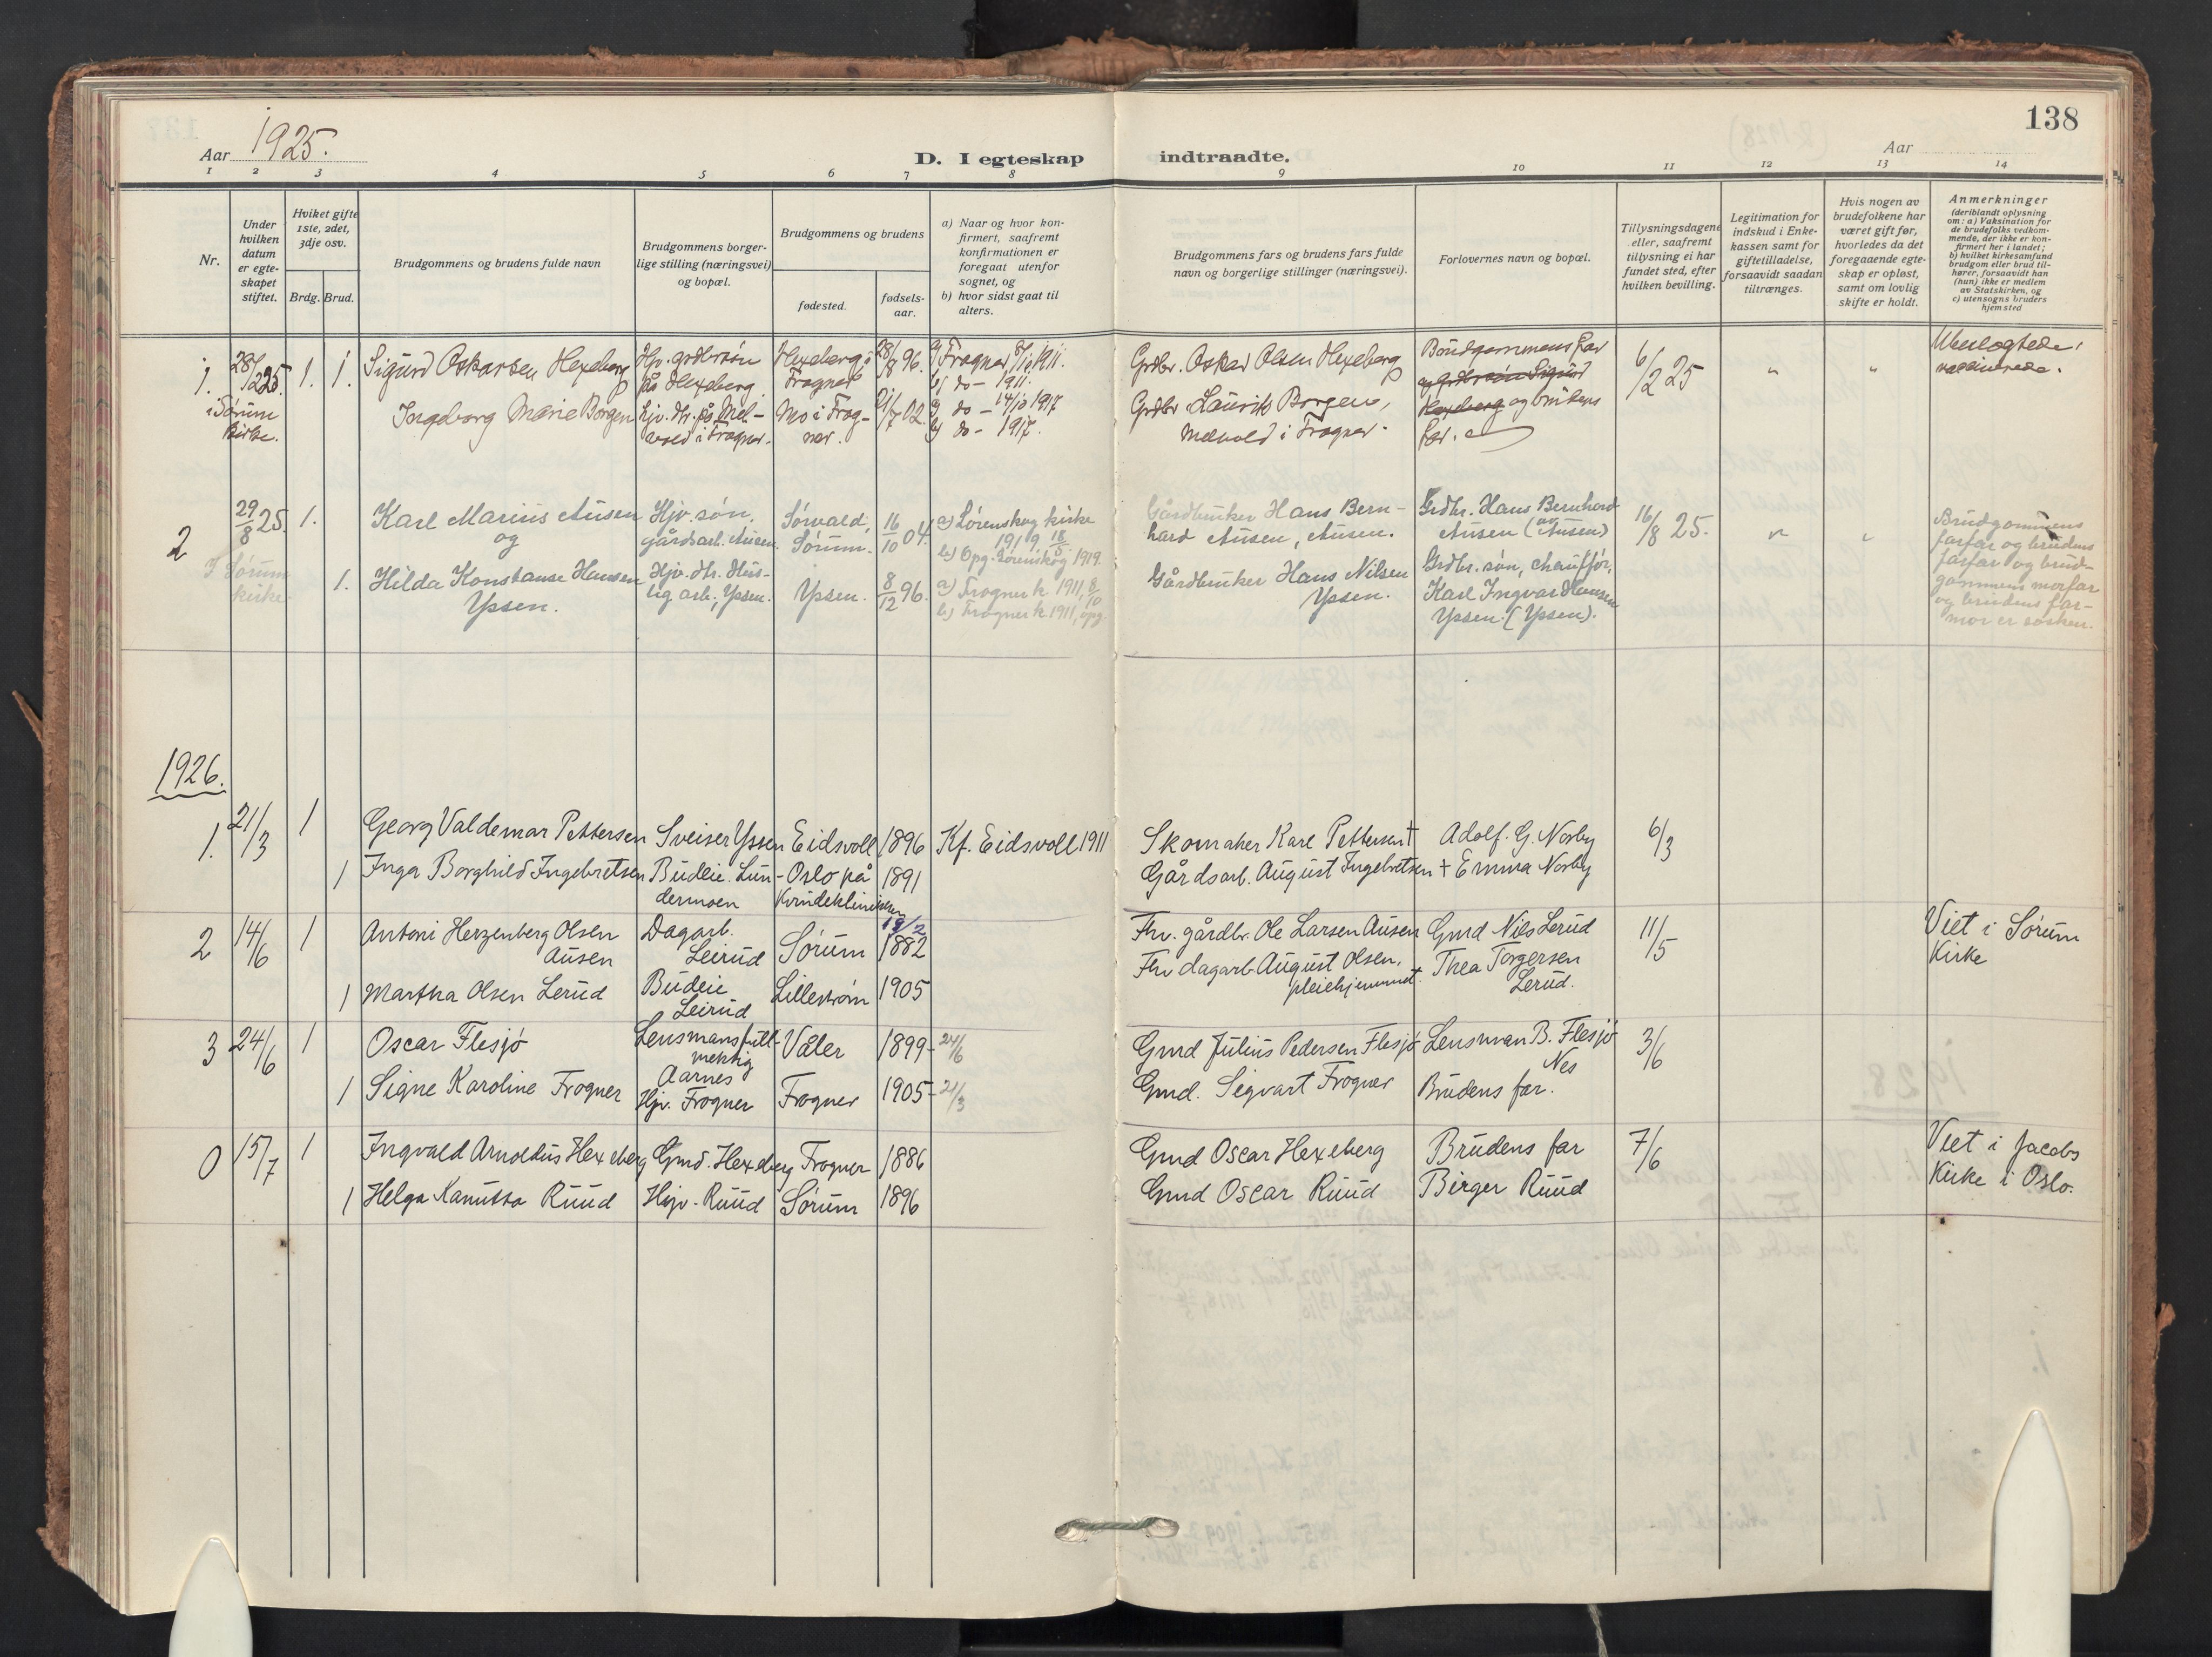 138
Aar 1925.
D. I egteskap indtraadte.
Aar
1 2 3 4 5 6 7 8 9 10 11 12 13 14
Nr.
Under
hvilken
datum
er egte-
skapet
stiftet.
Hviket gifte
1ste, 2det,
3dje osv.
Brdg. Brud.
Brudgommens og brudens fulde navn
Brudgommens borger-
lige stilling (næringsvei)
og bopæl.
Brudgommens og brudens
fødested.
fødsels-
aar.
a) Naar og hvor kon-
firmert, saafremt
konfirmationen er
foregaat utenfor
sognet, og
b) hvor sidst gaat til
alters.
Brudgommens fars og brudens fars fulde
navn og borgerlige stillinger (næringsvei).
Forlovernes navn og bopæl.
Tillysningsdagene
eller, saafremt
tillysning ei har
fundet sted, efter
hvilken bevilling.
Legitimation for
indskud i Enke-
kassen samt for
giftetilladelse,
forsaavidt saadan
tiltrænges.
Hvis nogen av
brudefolkene har
været gift før,
hvorledes da det
foregaaende egte-
skap er opløst,
samt om lovlig
skifte er holdt.
Anmerkninger
(deriblandt oplysning
om: a) Vaksination for
de brudefolks vedkom-
mende, der ikke er kon-
firmert her i landet;
b) hvilket kirkesamfund
brudgom eller brud til-
hører, forsaavidt han
(hun) ikke er medlem
av Statskirken, og
c) utensogns bruders
hjemsted
1. 28/2 25. 1. 1.
i Sørum
kirke.
Sigurd Oskarsen Hexeberg
Ingeborg Marie Borgen
Hjv. grdbrsøn
på Hexeberg
Hjv. dtr. på Mel-
vold i Frogner.
Hexeberg i
Frogner
Mo i Frog-
ner.
28/8 96.
21/7 02.
a) Frogner, 8/10 1911.
b) do - 1911.
a) do - 14/10 1917
b) do - 1917.
Grdbr. Oskar Olsen Hexeberg
Grdbr. Laurits Borgen,
Melvold i Frogner.
Brudgommens far
og grdbrsøn Sigurd
Hexeberg og brudens
far.
6/2 25
" "
Ubeslegtede,
vaksinerede.
2 29/8 25. 1.
I Sørum
kirke.
1.
Karl Marius Ausen
og
Hilda Konstanse Hansen
Yssen.
Hjv. søn,
gårdsarb. Ausen.
Hjv. dtr. Hus-
lig arb., Yssen.
Sørvald,
Sørum.
Yssen.
16/10 04.
8/12 96.
a) Lørenskog kirke
1919 18/5.
b) Opg. Lørenskog 1919.
a) Frogner k. 1911, 8/10
b) Frogner k 1911, opg.
Gårdbruker Hans Bern-
hard Ausen, Ausen.
Gårdbruker Hans Nilsen
Yssen.
Grdbr. Hans Bernhard
Ausen (av Ausen)
Grdbr. søn, chauffør,
Karl Ingvar Hansen
Yssen. (Yssen).
16/8 25.
" "
Brudgommens
farfar og brudens
farfar og brud-
gommens morfar
og brudens far-
mor er søsken.
1926.
1. 21/3 1
Georg Valdemar Pettersen Sveiser Yssen Eidsvoll 1896 Kf. Eidsvoll 1911
Skomaker Karl Pettersen † Adolf. G. Norby 6/3
1 Inga Borghild Ingebretsen Budeie. Lun-
dermoen
Oslo på
Kvindeklinikken
1891
Gårdsarb. August Ingebretsen † Emma Norby
2 14/6 1
Antoni Herzenberg Olsen
Ausen
Dagarb.
Leirud
Sørum
19/2
1882
Fhv. gårdbr. Ole Larsen Ausen Gmd Nils Lerud 11/5
Viet i Sørum
Kirke
1 Martha Olsen Lerud
Budeie
Leirud
Lillestrøm 1905
Fhv dagarb August Olsen,
pleiehjemmet.
Thea Torgersen
Lerud.
3 24/6 1
Oscar Flesjø
Lensmansfull-
mektig
Aarnes
Våler 1899 - 24/6
Gmd Julius Pedersen Flesjø Lensman B. Flesjø
Nes
3/6
1 Signe Karoline Frogner Hjv. Frogner Frogner 1905 - 21/3
Gmd. Segvart Frogner Brudens far.
0 15/7 1
Ingvald Arnoldus Hexeberg Gmd. Hexeberg Frogner 1886
Gmd Oscar Hexeberg Brudens far 7/6
Viet i Jacobs
Kirke i Oslo.
1 Helga Kanutta Ruud Hjv. Ruud Sørum 1896
Gmd Oscar Ruud Birger Ruud